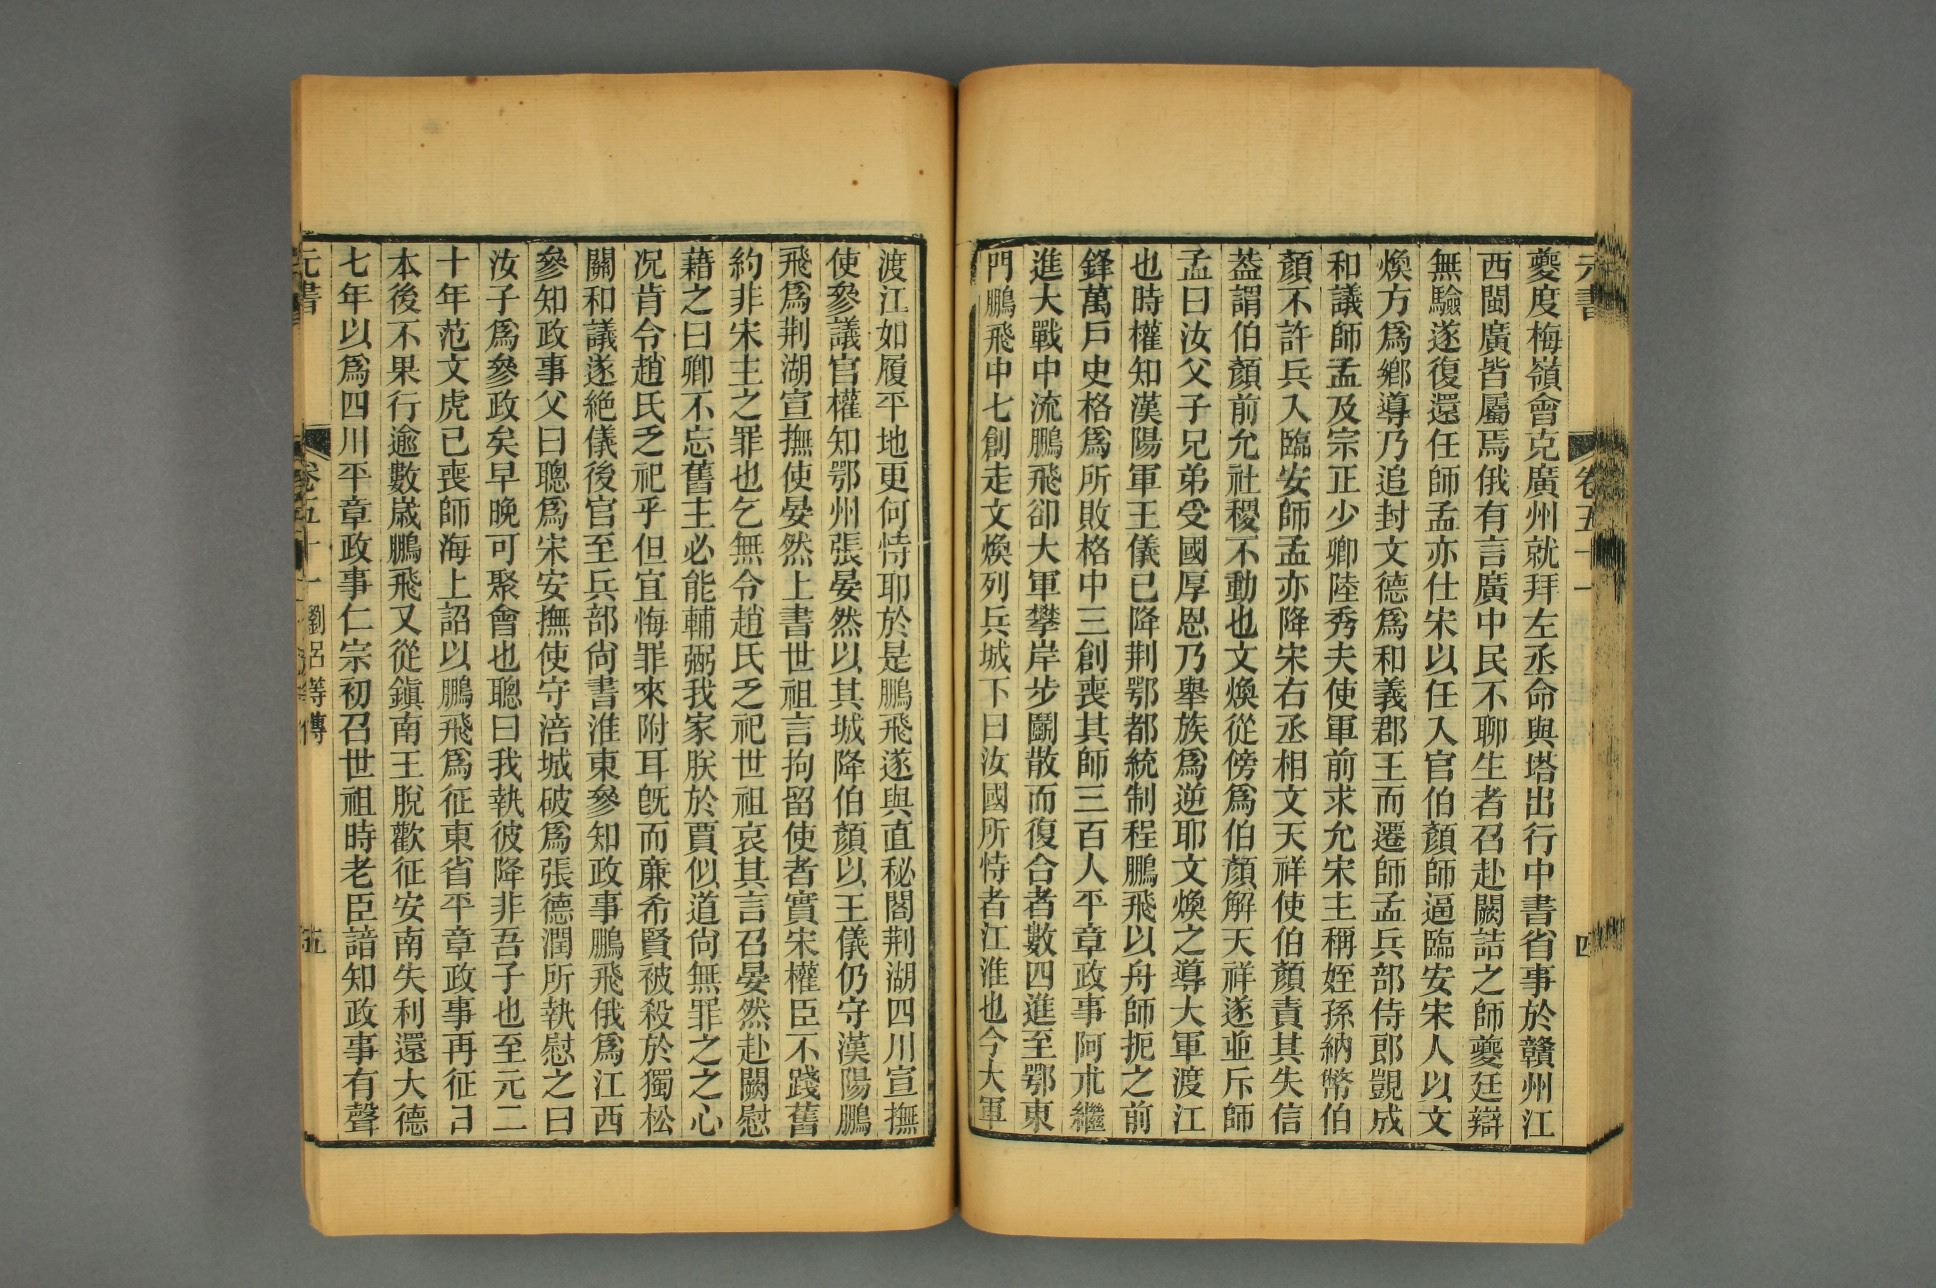 元書 卷五十一 四
夔度梅嶺會克廣州就拜左丞命與塔出行中書省事於贛州江
西閩廣皆屬焉俄有言廣中民不聊生者召赴闕詰之師夔廷辯
無驗遂復還任師孟亦仕宋以任入官伯顏師逼臨安宋人以文
煥方爲鄉導乃追封文德爲和義郡王而遷師孟兵部侍郎覬成
和議師孟及宗正少卿陸秀夫使軍前求允宋主稱姪孫納幣伯
顏不許兵入臨安師孟亦降宋右丞相文天祥使伯顏責其失信
葢謂伯顏前允社稷不動也文煥從傍爲伯顏解天祥遂並斥師
孟曰汝父子兄弟受國厚恩乃舉族爲逆耶文煥之導大軍渡江
也時權知漢陽軍王儀已降荆鄂都統制程鵬飛以舟師扼之前
鋒萬戶史格爲所敗格中三創喪其師三百人平章政事阿朮繼
進大戰中流鵬飛卻大軍攀岸步鬭散而復合者數四進至鄂東
門鵬飛中七創走文煥列兵城下曰汝國所恃者江淮也今大軍
渡江如履平地更何恃耶於是鵬飛遂與直秘閣荆湖四川宣撫
使參議官權知鄂州張晏然以其城降伯顏以王儀仍守漢陽鵬
飛爲荆湖宣撫使晏然上書世祖言拘留使者實宋權臣不踐舊
約非宋主之罪也乞無令趙氏乏祀世祖哀其言召晏然赴闕慰
藉之曰卿不忘舊主必能輔弼我家朕於賈似道尙無罪之之心
况肯令趙氏乏祀乎但宜悔罪來附耳旣而亷希賢被殺於獨松
關和議遂絶儀後官至兵部尙書淮東參知政事鵬飛俄爲江西
參知政事父曰聰爲宋安撫使守涪城破爲張德潤所執慰之曰
汝子爲參政矣早晚可聚會也聰曰我執彼降非吾子也至元二
十年范文虎已喪師海上詔以鵬飛爲征東省平章政事再征日
本後不果行逾數歲鵬飛又從鎭南王脫歡征安南失利還大德
七年以爲四川平章政事仁宗初召世祖時老臣諳知政事有聲
元書 卷五十一 劉呂等傳 五